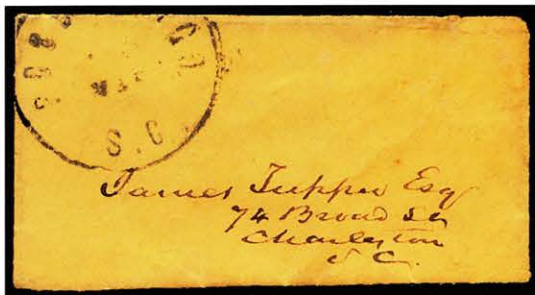 S.C.
James Tupper Esq
74 Broad St
Charleston
S C.